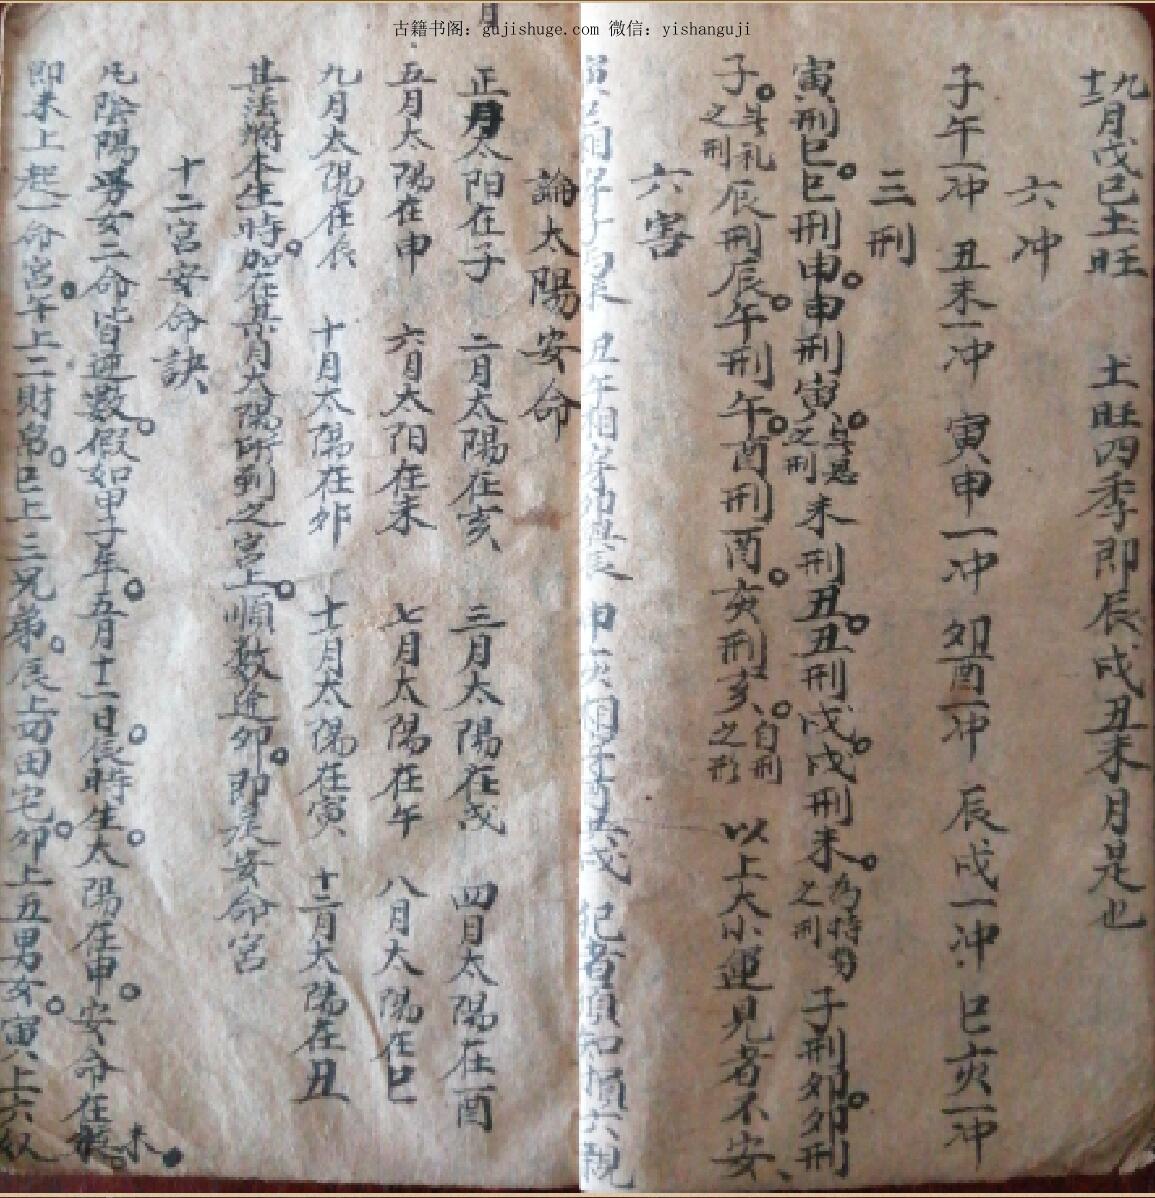 古籍书阁：gujishuge.com 微信：yishanguji
九十二月戊己土旺 土旺四季即辰戌丑未月是也
六冲
子午一冲 丑未一冲 寅申一冲 卯酉一冲 辰戌一冲 巳亥一冲
三刑
寅刑巳巳刑申申刑寅无恩之刑未刑丑丑刑戌戌刑未为特势之刑子刑卯卯刑
子无礼之刑辰刑辰午刑午酉刑酉亥刑亥自刑之形 以上大小運見者不安
六害
丑午相 犯者 知損六親
論太陽安命
月
正月太阳在子 二月太陽在亥 三月太陽在戌 四月太陽在酉
五月太陽在申 六月太阳在未 七月太陽在午 八月太陽在巳
九月太陽在辰 十月太陽在卯 十一月太陽在寅 十二月太陽在丑
其法将本生時加在其月太陽所到之宮上順数逆卯即是安命宮
十二宮安命訣
凡陰陽男女二命皆逆数假如甲子年五月十一日辰時生太陽在申安命在未
即未上起一命宮午上二財帛巳上三兄弟辰上四田宅卯上五男女寅上六奴